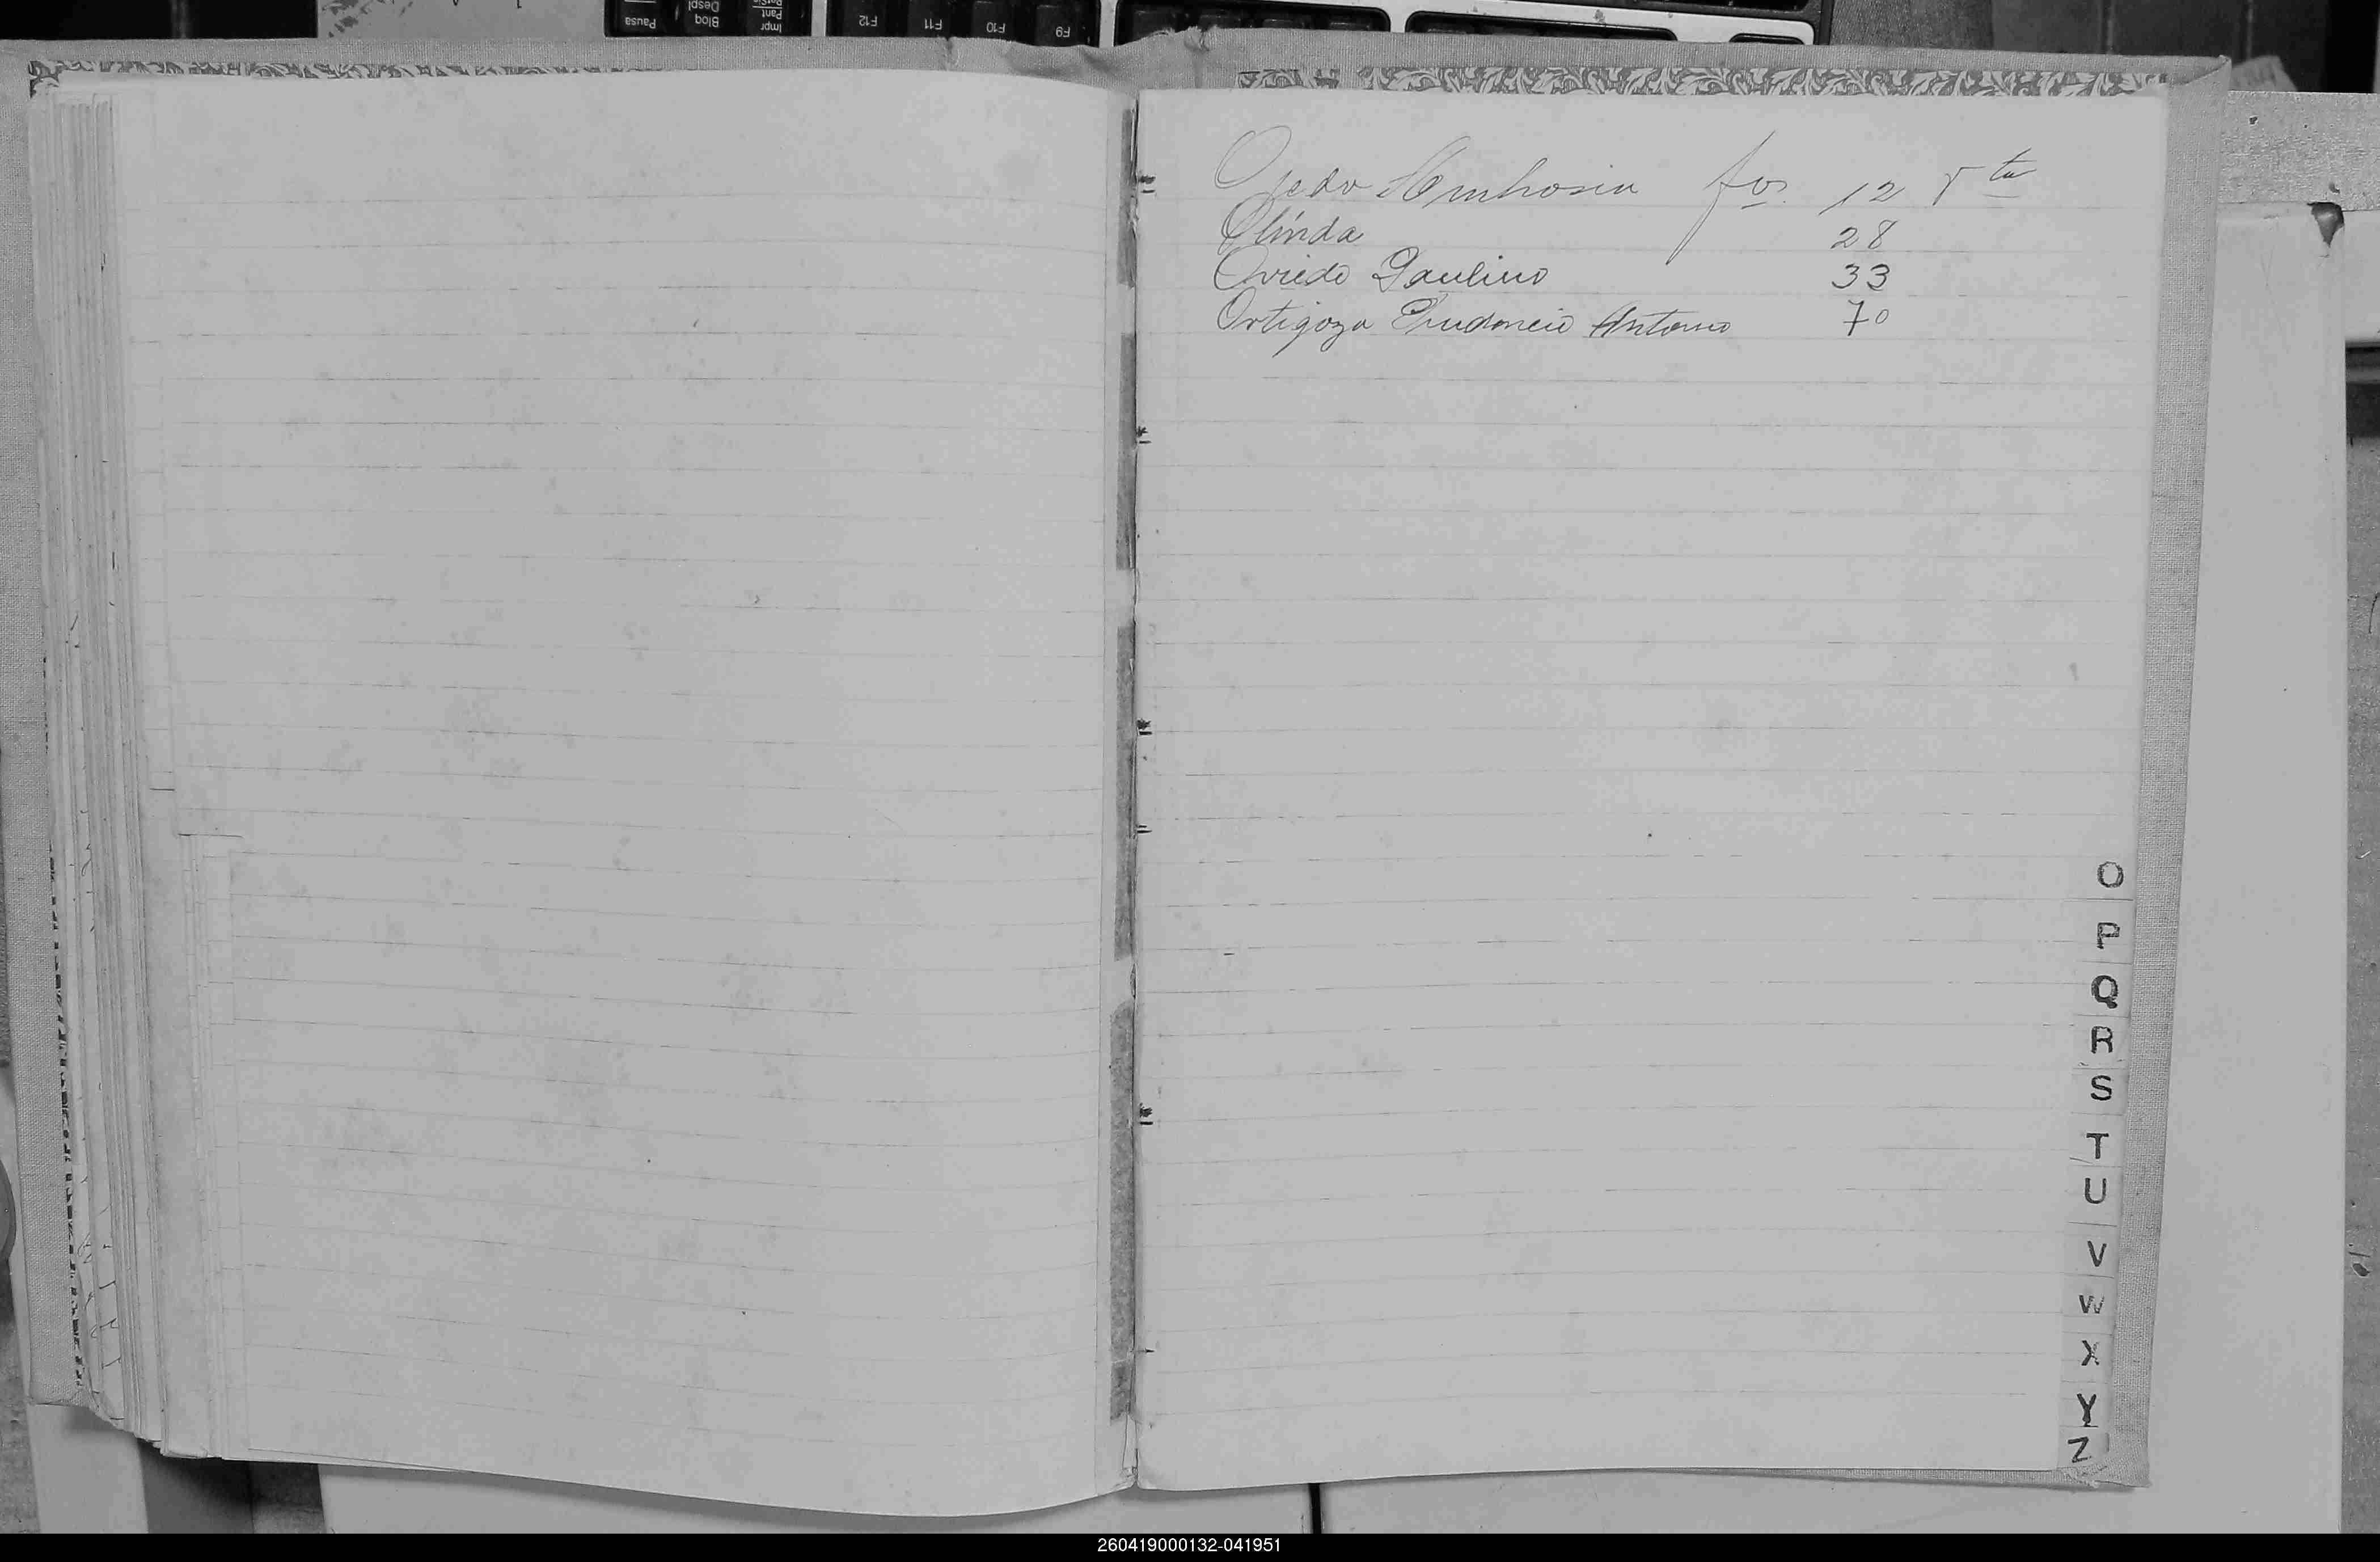 Ojeda Ambrosia fos. 12 vta
Olinda 28
Oviedo Paulino 33
Ortigoza Prudencio Antonio 70
O
P
Q
R
S
T
U
V
W
X
Y
Z
Pausa
Bloq
Despl
Impr
Pant
F12
F11
F10
F9
260419000132-041951